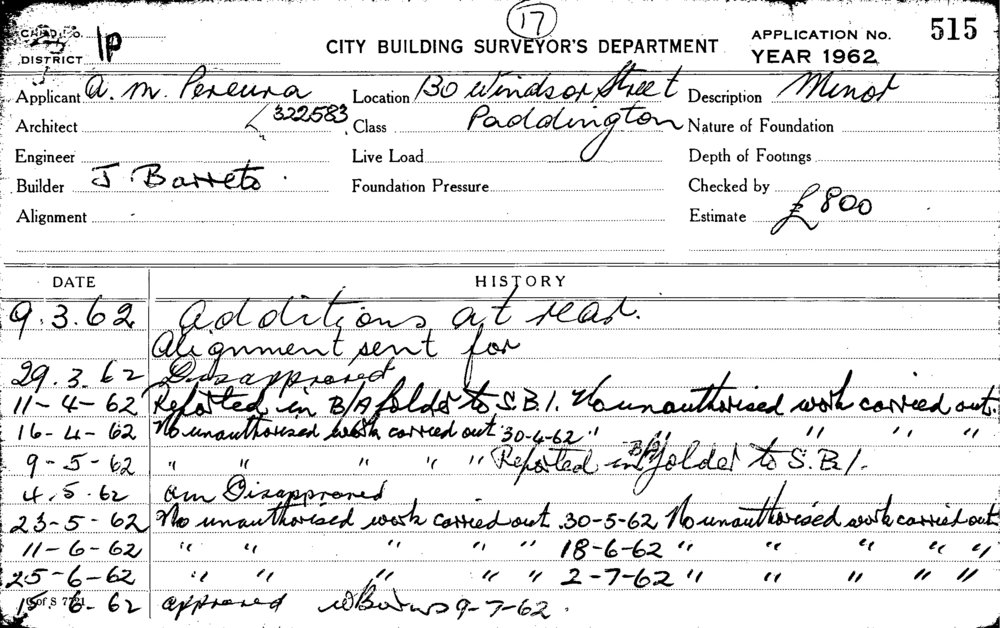 17
DISTRICT 1P
CITY BUILDING SURVEYOR'S DEPARTMENT
APPLICATION No. 515
YEAR 1962
Applicant A. M. Pereira Location 130 Windsor Street Description Minor
Architect 322583 Class Paddington Nature of Foundation
Engineer Live Load Depth of Footings
Builder J. Barreto. Foundation Pressure Checked by
Alignment Estimate £800
DATE HISTORY
9.3.62 Additions at rear.
Alignment sent for
29.3.62 Disapproved
11-4-62 Reported in B/A folder to S.B.I. No unauthorised work carried out.
16-4-62 No unauthorised work carried out 30-4-62 " " " " "
9-5-62 " " " " " Reported in B/A folder to S.B.I.
4.5.62 am Disapproved
23-5-62 No unauthorised work carried out. 30-5-62 No unauthorised work carried out
11-6-62 " " " " " 18-6-62 " " " " "
25-6-62 " " " " " 2-7-62 " " " " "
15-6-62 approved 9-7-62.